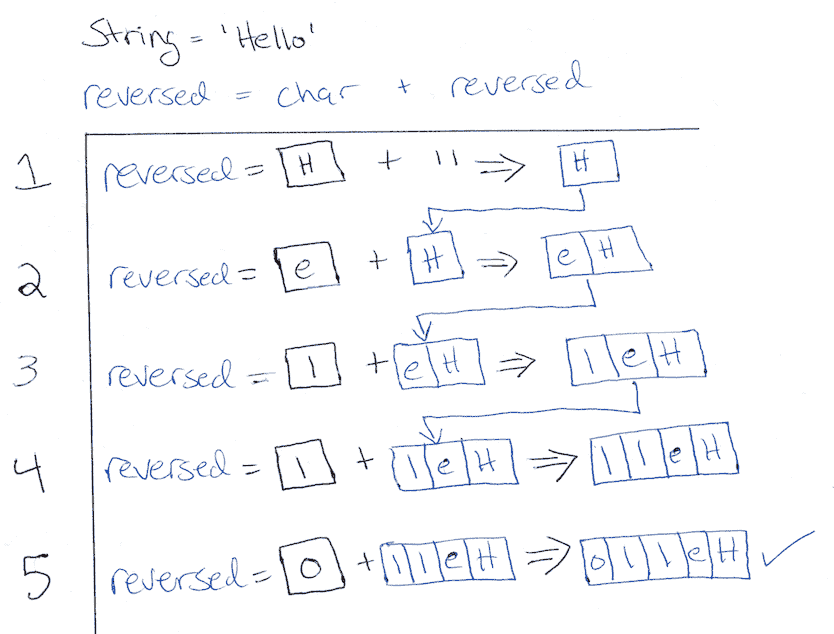 String = 'Hello'
reversed = char + reversed
1 reversed = H + '' => H
2 reversed = e + H => e H
3 reversed = l + e H => l e H
4 reversed = l + l e H => l l e H
5 reversed = o + l l e H => o l l e H ✓